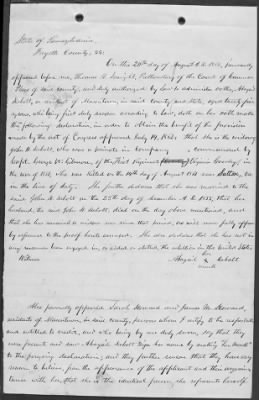 State of Pennsylvania,
Fayette County, SS:
On this 28th day of August A.D. 1862, personally
appeared before me, Thomas B. Searight, Prothonotary of the Court of Common
Pleas of said county, and duly authorized by law to administer oaths, Abigail
Sibbitt, a resident of in said county and state, aged
years, who being first duly sworn according to law, doth on her oath make the
following declaration, in order to obtain the benefit of the provision
made by the act of Congress approved July 14, 1862: that she is the widow of
John H. Sibbitt, who was a private in Company commanded by
Capt. George W. Gilmore, of the First Virginia (Virginia Cavalry) in the
war of 1861, who was killed on the 14th day of August 1861 near Sutton, Va.
in the line of duty. She further declares that she was married to the
said John H. Sibbitt on the 25th of December A.D. 1855, that her
husband, the said John H. Sibbitt, died on the day above mentioned, and
that she has remained a widow ever since that period, as will more fully appear
by reference to the proof hereto annexed. She further declares that she has not in
any manner been engaged in, or aided or abetted, the rebellion in the United States.
Witness Abigail her X mark Sibbitt
Also personally appeared Sarah Howard and James M. Howard,
residents of in said county, persons whom I certify to be respectable
and entitled to credit, and who being by me duly sworn, say that they
were present and saw Abigail Sibbitt sign her name by making the mark
to the foregoing declaration; and they further swear that they have every
reason to believe, from the appearance of the applicant and their acquain-
tance with her, that she is the identical person she represents herself